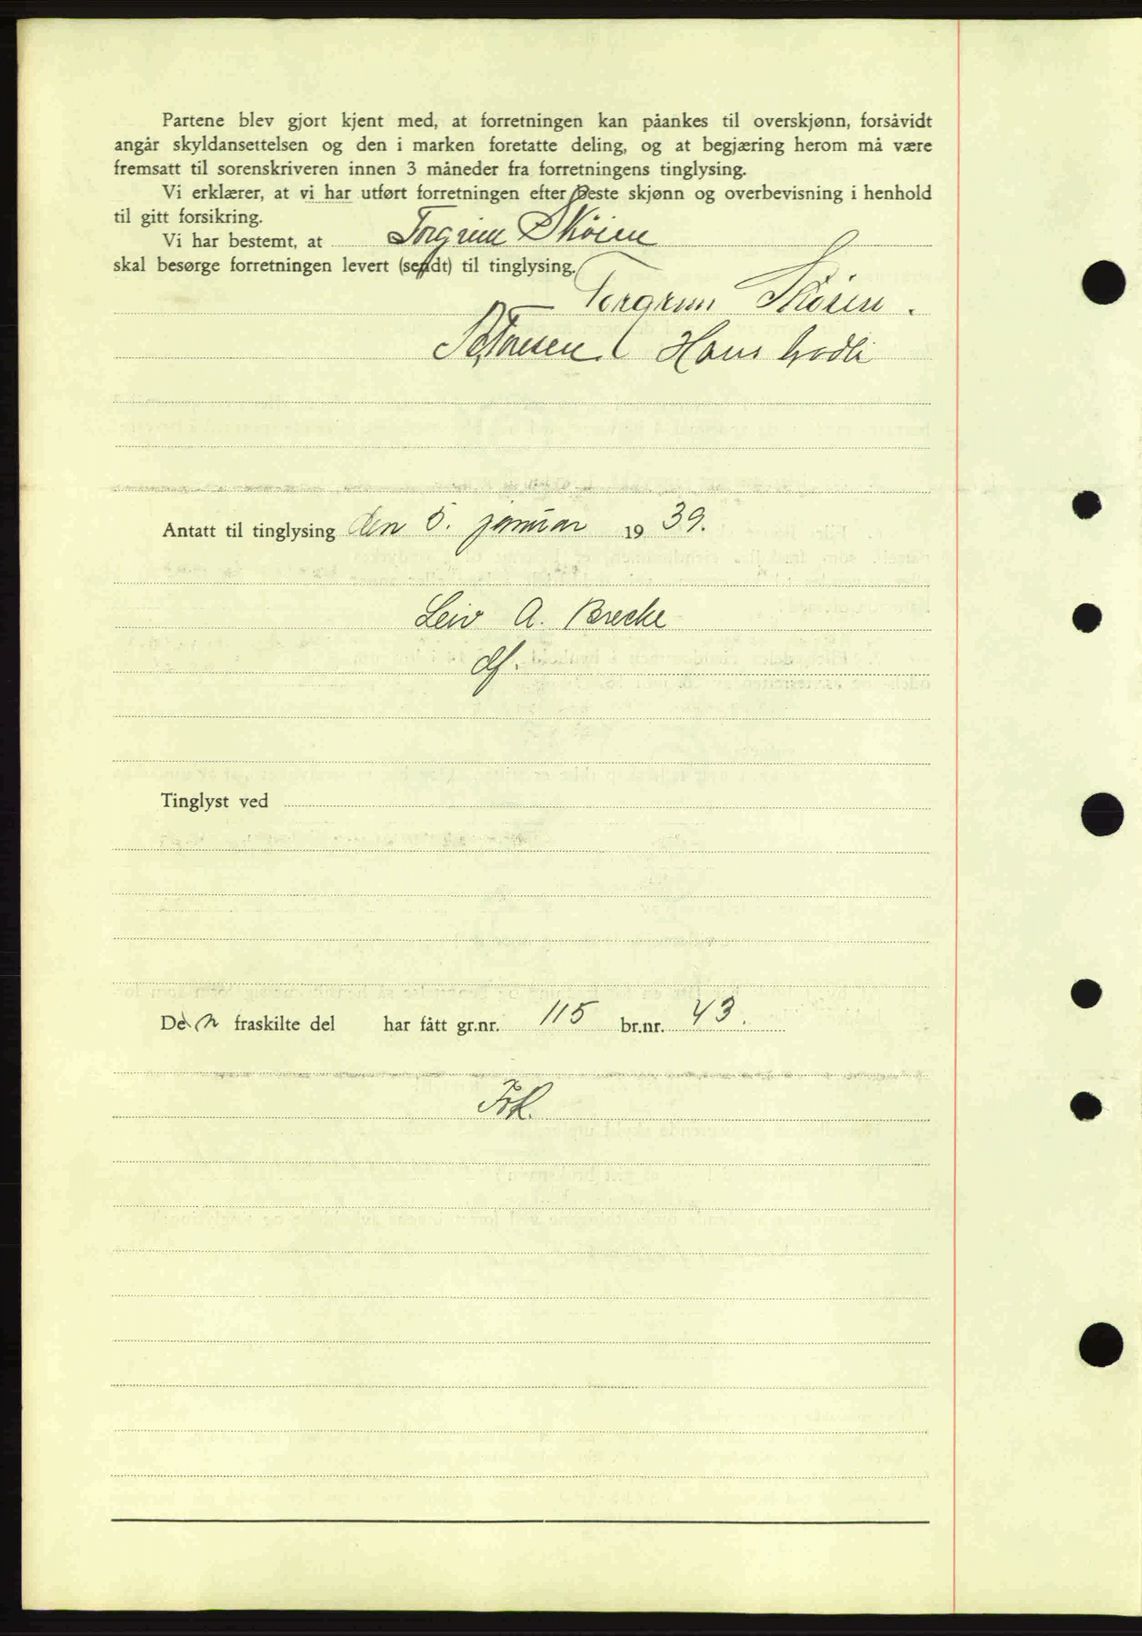 Partene blev gjort kjent med, at forretningen kan påankes til overskjønn, forsåvidt
angår skyldansettelsen og den i marken foretatte deling, og at begjæring herom må være
fremsatt til sorenskriveren innen 3 måneder fra forretningens tinglysing.
Vi erklærer, at vi har utført forretningen efter beste skjønn og overbevisning i henhold
til gitt forsikring.
Vi har bestemt, at Torgrim Skøien
skal besørge forretningen levert (sendt) til tinglysing.
Torgrim Skøien.
Hans
Antatt til tinglysing den 5. januar 1939.
Leiv A. Brecke
df.
Tinglyst ved
Den fraskilte del har fått gr.nr. 115 br.nr. 43.